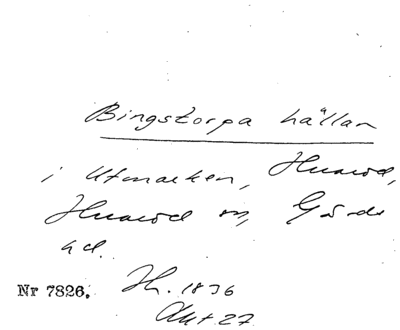 Bingstorpa hällan
i Utmarken, Huaröd,
Huaröd sn, Gärds
hd.
Nr 7826. Hh. 1836
Akt 27